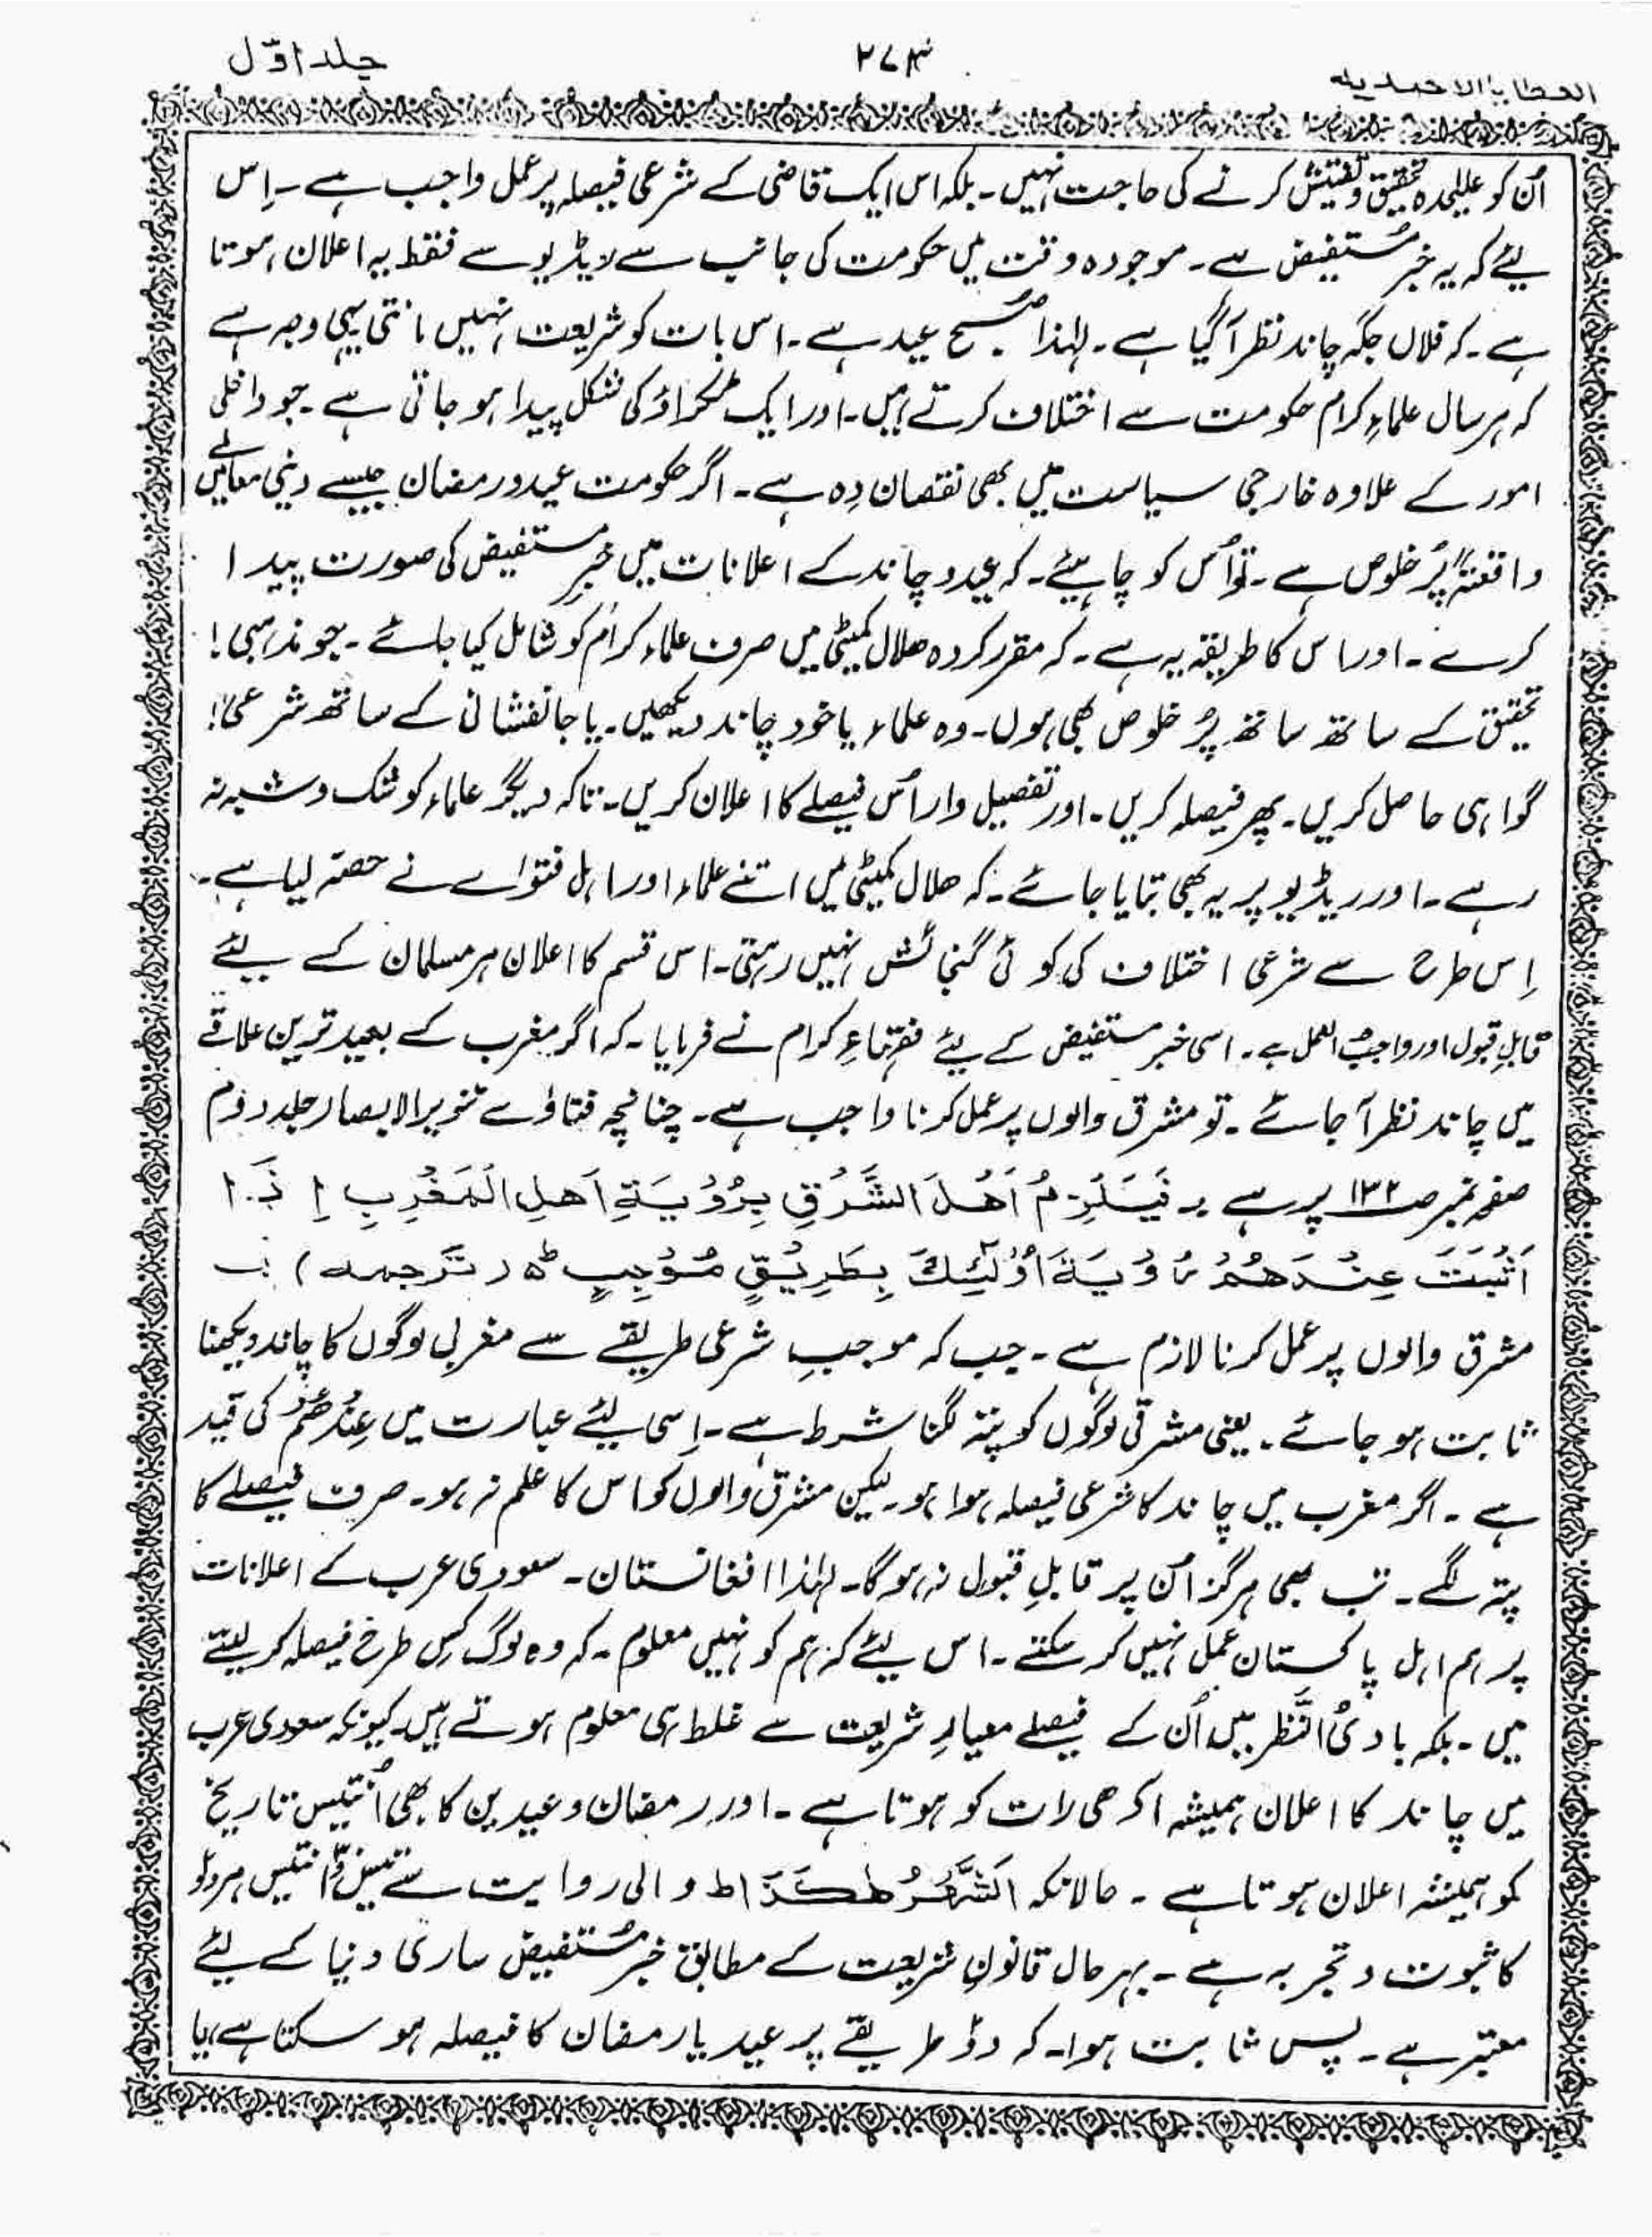 العطایا الاحمدیہ
۲۷۴
جلد اوّل
اُن کو علیٰحدہ تحقیق و تفتیش کرنے کی حاجت نہیں۔ بلکہ اس ایک قاضی کے شرعی فیصلہ پر عمل واجب ہے۔ اِس
لیئے کہ یہ خبر مُستفیض ہے۔ موجودہ وقت میں حکومت کی جانب سے ریڈیو سے فقط یہ اعلان ہوتا
ہے۔ کہ فلاں جگہ چاند نظر آگیا ہے۔ لہٰذا صُبح عید ہے۔ اس بات کو شریعت نہیں مانتی یہی وجہ ہے
کہ ہر سال علماءِ کرام حکومت سے اختلاف کرتے ہیں۔ اور ایک ٹکراؤ کی شکل پیدا ہو جاتی ہے۔ جو داخلی
امور کے علاوہ خارجی سیاست میں بھی نقصان دِہ ہے۔ اگر حکومت عید و رمضان جیسے دینی معاملے میں
واقعتہً پُر خلوص ہے۔ تو اُس کو چاہیئے۔ کہ عید و چاند کے اعلانات میں خبرِ مستفیض کی صورت پیدا
کرے۔ اور اس کا طریقہ یہ ہے۔ کہ مقرر کردہ ھلال کمیٹی میں صرف علماء کرام کو شامل کیا جائے۔ جو مذہبی!
تحقیق کے ساتھ ساتھ پُر خلوص بھی ہوں۔ وہ علماء یا خود چاند دیکھیں۔ یا جانفشانی کے ساتھ شرعی!
گواہی حاصل کریں۔ پھر فیصلہ کریں۔ اور تفصیل وار اُس فیصلے کا اعلان کریں۔ تاکہ دیگر علماء کو شک و شبہ نہ
رہے۔ اور ریڈیو پر یہ بھی بتایا جائے۔ کہ ھلال کمیٹی میں اتنے علماء اور اہل فتوٰے نے حصہ لیا ہے۔
اِس طرح سے شرعی اختلاف کی کوئی گنجائش نہیں رہتی۔ اس قسم کا اعلان ہر مسلمان کے لیئے
قابلِ قبول اور واجبُ العمل ہے۔ اسی خبر مستفیض کے لیئے فقہاءِ کرام نے فرمایا۔ کہ اگر مغرب کے بعید ترین علاقے
میں چاند نظر آ جائے۔ تو مشرق والوں پر عمل کرنا واجب ہے۔ چنانچہ فتاوٰے تنویر الابصار جلد دوم
صفحہ نمبر صـ۱۳۲ پر ہے :۔ فَیَلْزِمُ اَھْلَ الشَّرْقِ بِرُؤْیَۃِ اَھْلِ الْمَغْرِبِ اِذَ۔ا
اَثْبَتَ عِنْدَھُمْ رُؤْیَۃَ اُوْلٰئِکَ بِطَرِیْقٍ مُوْجِبٍ ط (ترجمہ) :۔
مشرق والوں پر عمل کرنا لازم ہے۔ جب کہ موجبِ شرعی طریقے سے مغربی لوگوں کا چاند دیکھنا
ثابت ہو جائے۔ یعنی مشرقی لوگوں کو پتہ لگنا شرط ہے۔ اِسی لیئے عبارت میں عِنْدَھُمْ کی قید
ہے۔ اگر مغرب میں چاند کا شرعی فیصلہ ہوا ہو۔ لیکن مشرق والوں کو اس کا علم نہ ہو۔ صرف فیصلے کا
پتہ لگے۔ تب بھی ہرگز اُن پر قابلِ قبول نہ ہوگا۔ لہٰذا افغانستان۔ سعودی عرب کے اعلانات
پر ہم اہل پاکستان عمل نہیں کر سکتے۔ اس لیئے کہ ہم کو نہیں معلوم۔ کہ وہ لوگ کِس طرح فیصلہ کر لیتے
ہیں۔ بلکہ بادیُ النَّظر میں اُن کے فیصلے معیارِ شریعت سے غلط ہی معلوم ہوتے ہیں۔ کیونکہ سعودی عرب
میں چاند کا اعلان ہمیشہ آدھی رات کو ہوتا ہے۔ اور رمضان و عیدین کا بھی اُنتیس تاریخ
کو ہمیشہ اعلان ہوتا ہے۔ حالانکہ اَلشَّھْرُ ھٰکَذَا ط والی روایت سے تیس و اُنتیس ہر دو
کا ثبوت و تجربہ ہے۔ بہرحال قانونِ شریعت کے مطابق خبرِ مُستفیض ساری دنیا کے لیئے
معتبر ہے۔ پس ثابت ہوا۔ کہ دو طریقے پر عید یا رمضان کا فیصلہ ہو سکتا ہے، یا